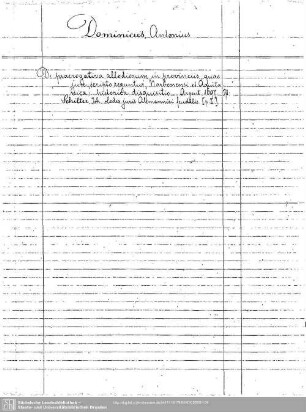 Dominicus, Antonius
De praerogativa allodiorum in provinciis, quae
jure scripto reguntur, Narbonensi et Aquita-
nica, historica disquisitio. Argent. 1697. In:
Schilter, Joh. Codex juris Allemannici feudalis
Sächsische Landesbibliothek -
Staats- und Universitätsbibliothek Dresden